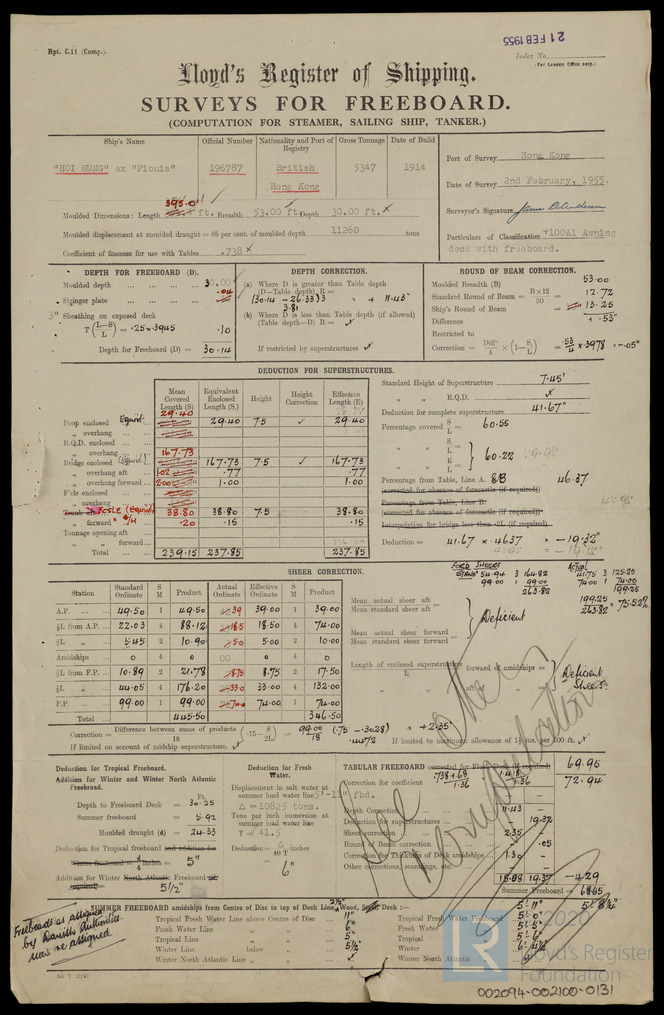 Rpt. C.11 (Comp.).
21 FEB 1955
Index No.
(For London Office only.)
Lloyd's Register of Shipping.
SURVEYS FOR FREEBOARD.
(COMPUTATION FOR STEAMER, SAILING SHIP, TANKER.)
Ship's Name
Official Number
Nationality and Port of Registry
Gross Tonnage
Date of Build
"HOI HUNG" ex "Fionia"
196787
British
Hong Kong
5347
1914
Port of Survey Hong Kong
Date of Survey 2nd February, 1955.
Surveyor's Signature
Particulars of Classification +100A1 Awning
deck with freeboard.
395.0'
Moulded Dimensions: Length ft. Breadth 53.00 ft. Depth 30.00 ft.
Moulded displacement at moulded draught = 85 per cent. of moulded depth 11260 tons
Coefficient of fineness for use with Tables .738
DEPTH FOR FREEBOARD (D).
Moulded depth 30.00
Stringer plate .04
3" Sheathing on exposed deck
T (L-S/L) = .25 x .3945 .10
Depth for Freeboard (D) = 30.14
DEPTH CORRECTION.
(a) Where D is greater than Table depth
(D-Table depth) R =
(30.14 - 26.33) 3 = + 11.43"
3.81
(b) Where D is less than Table depth (if allowed)
(Table depth-D) R =
If restricted by superstructures
ROUND OF BEAM CORRECTION.
Moulded Breadth (B) 53.00
Standard Round of Beam = B x 12 / 50 = 12.72
Ship's Round of Beam = 13.25
Difference + .53"
Restricted to
Correction = Diff / 4 x (1 - S1/L) = .53/4 x .3978 = -.05"
DEDUCTION FOR SUPERSTRUCTURES.
Mean Covered Length (S)
Equivalent Enclosed Length (S1)
Height
Height Correction
Effective Length (E)
Poop enclosed Equiv. 29.40 29.40 7.5 29.40
" overhang
R.Q.D. enclosed
" overhang
Bridge enclosed (Equiv) 167.73 167.73 7.5 167.73
" overhang aft .77 .77
" overhang forward 1.00 1.00
F'cle enclosed
" overhang
F'CSLE (Equiv) 38.80 38.80 7.5 38.80
" forward O/H .20 .15 .15
Tonnage opening aft
" " forward
Total 239.15 237.85 237.85
Standard Height of Superstructure 7.45'
" " R.Q.D.
Deduction for complete superstructure 41.67"
Percentage covered S/L = 60.55
" " S1/L
" " E/L = 60.22
Percentage from Table, Line A. 8B 46.37
(corrected for absence of forecastle (if required))
Percentage from Table, Line B.
(corrected for absence of forecastle (if required))
Interpolation for bridge less than .2L (if required)
Deduction = 41.67 x .4637 = -19.32"
SHEER CORRECTION.
Station
Standard Ordinate
S M
Product
Actual Ordinate
Effective Ordinate
S M
Product
A.P. 49.50 1 49.50 39 39.00 1 39.00
⅙L from A.P. 22.03 4 88.12 18.5 18.50 4 74.00
⅓L " 5.45 2 10.90 5.0 5.00 2 10.00
Amidships 0 4 0 00 0 4 0
⅓L from F.P. 10.89 2 21.78 8.75 8.75 2 17.50
⅙L " 44.05 4 176.20 33.0 33.00 4 132.00
F.P. 99.00 1 99.00 74.0 74.00 1 74.00
Total 445.50 346.50
Correction = Difference between sums of products / 18 (.75 - S/2L) = 99.00/18 (.75 - .3028) = + 2.35"
.4472
If limited on account of midship superstructure.
If limited to maximum allowance of 1½ ins. per 100 ft.
FORD SHEERS
STAND 54.94 3 164.82
99.00 1 99.00
263.82
ACTUAL
41.75 3 125.25
74.00 1 74.00
199.25
199.25 / 263.82 = 75.52%
Mean actual sheer aft
Mean standard sheer aft
= Deficient
Mean actual sheer forward
Mean standard sheer forward
Length of enclosed superstructure forward of amidships =
L
" " aft of " =
Deficient Sheers
Deduction for Tropical Freeboard.
Addition for Winter and Winter North Atlantic Freeboard.
Ft.
Depth to Freeboard Deck = 30.25
Summer freeboard = 5.92
Moulded draught (d) = 24.33
Deduction for Tropical freeboard and addition for
Winter freeboard d/4 inches = 5"
Addition for Winter North Atlantic Freeboard (if required) =
5½"
Deduction for Fresh Water.
Displacement in salt water at summer load water line 5'-11" fbd.
Δ = 10825 tons.
Tons per inch immersion at summer load water line
T = 41.5
Deduction = Δ / 40 T inches
6"
TABULAR FREEBOARD corrected for Flush Deck (if required) 69.95
Correction for coefficient .738 + .68 / 1.36 1.418 / 1.36 72.94
Depth Correction 11.43 -
Deduction for superstructures - 19.32
Sheer correction 2.35 -
Round of Beam correction - .05
Correction for Thickness of Deck amidships 1.30 -
Other corrections, scantlings, etc.
15.08 19.37 -4.29
Summer Freeboard = 68.65
All Other Conditions
SUMMER FREEBOARD amidships from Centre of Disc to top of Deck Line, 2½" Wood, Steel, Deck :— 5'- 8¾"
Tropical Fresh Water Line above Centre of Disc 11"
Fresh Water Line " " 6"
Tropical Line " " 5"
Winter Line below " 5½"
Winter North Atlantic Line " "
5'- 11"
Tropical Fresh Water Freeboard 5'- 0"
Fresh Water " 5'- 5"
Tropical " 5'- 6"
Winter " 6'- 4½"
Winter North Atlantic "
Freeboards as assigned by Danish Authorities now re assigned
© 2020
LR
Lloyd's Register
Foundation
002094-002100-0131